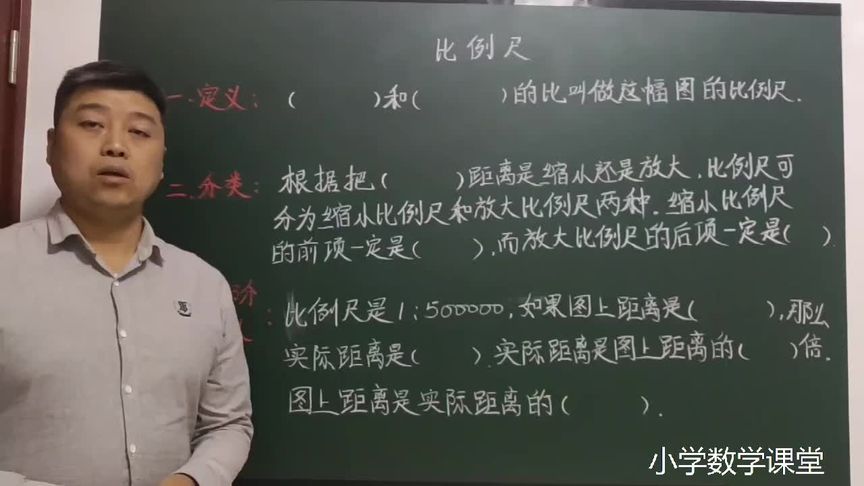 比例尺
一.定义:(　　)和(　　)的比叫做这幅图的比例尺.
二.分类:根据把(　　)距离是缩小还是放大,比例尺可
分为缩小比例尺和放大比例尺两种.缩小比例尺
的前项一定是(　　),而放大比例尺的后项一定是(　　).
比例尺是1:500000,如果图上距离是(　　),那么
实际距离是(　　).实际距离是图上距离的(　　)倍.
图上距离是实际距离的(　　).
小学数学课堂